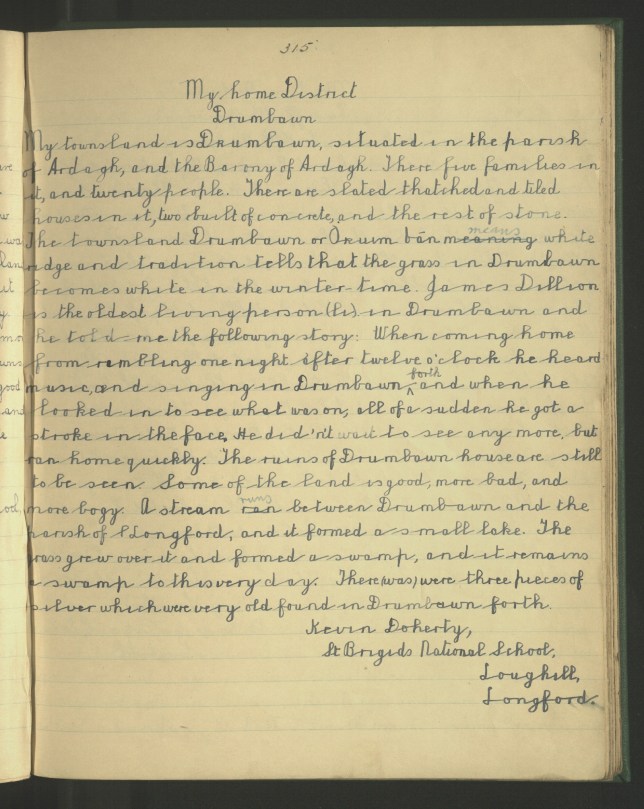 315
My home District
Drumbawn
My townsland is Drumbawn, situated in the parish
of Ardagh, and the Barony of Ardagh. There five families in
it, and twenty people. There are slated thatched and tiled
houses in it, two built of concrete, and the rest of stone.
means
The townsland Drumbawn or Druim bán meaning white
ridge and tradition tells that the grass in Drumbawn
becomes white in the winter-time. James Dillion
is the oldest living person (is) in Drumbawn and
he told me the following story: When coming home
from rambling one night after twelve o'clock he heard
forth
music, and singing in Drumbawn and when he
looked in to see what was on, all of a sudden he got a
stroke in the face. He did'n't wait to see any more, but
ran home quickly. The ruins of Drumbawn house are still
to be seen. Some of the land is good, more bad, and
runs
more bogy. A stream ran between Drumbawn and the
parish of Longford, and it formed a small lake. The
grass grew over it and formed a swamp, and it remains
a swamp to this very day. There (was) were three pieces of
silver which were very old found in Drumbawn forth.
Kevin Doherty,
St Brigids National School,
Loughill,
Longford.